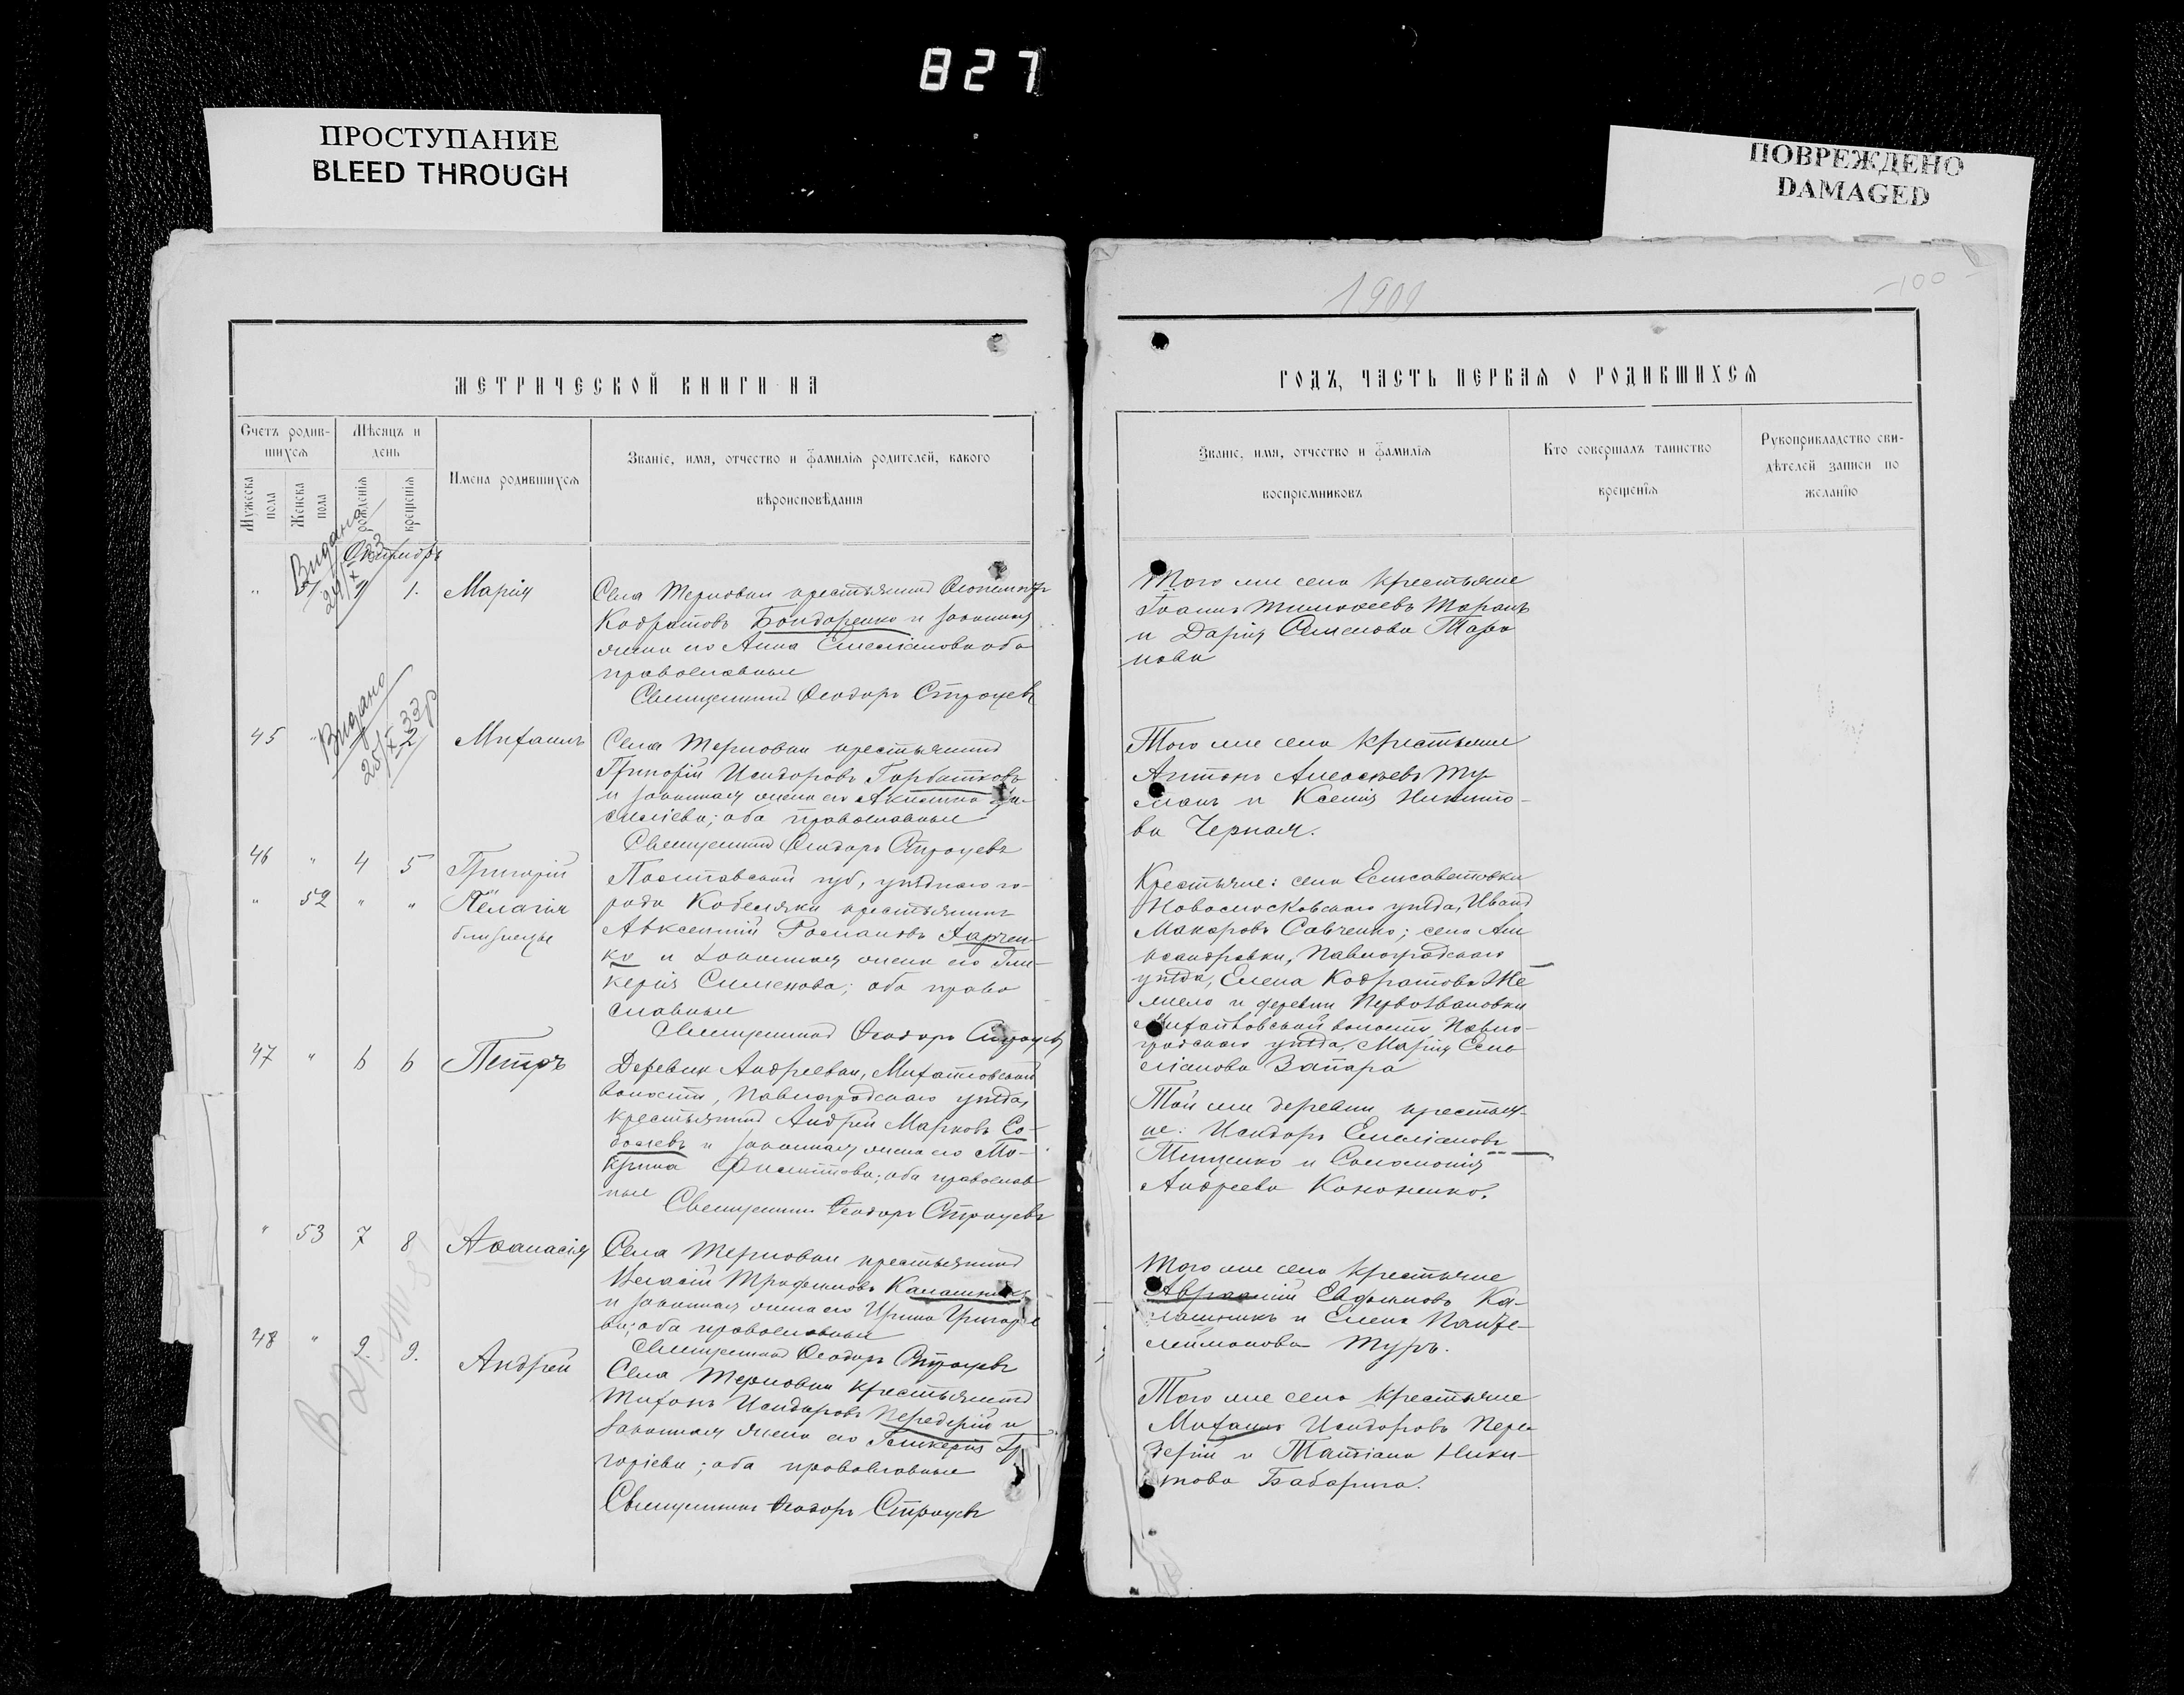 827
ПРОСТУПАНИЕ
BLEED THROUGH
ПОВРЕЖДЕНО
DAMAGED
МЕТРИЧЕСКОЙ КНИГИ НА
Счетъ родив-
шихся
Мѣсяцъ и
день
Мужеска
пола
Женска
пола
рожденія
крещенія
Имена родившихся
Званіе, имя, отчество и фамилія родителей, какого
вѣроисповѣданія
Видано
Октябрь
" 1. Марія
Села Терновки крестьянинъ
Кодратовъ Бондаренко и законная
жена его Анна Емеліанова оба
православные
Священникъ Ѳеодоръ Строцевъ
Видано
25/X 33 р
45 " 2 Михаилъ
Села Терновки крестьянинъ
Григорій Исидоровъ Горбатковъ
и законная жена его Акилина
оба православные
Священникъ Ѳеодоръ Строцевъ
46 " 4 5 Григорій
" 52 " " Пелагія
близнецы
Полтавской губ, уѣзднаго го-
рода Кобеляки крестьянинъ
Авксентій Романовъ Харчен-
ко и законная жена его Гли-
керія Сименова; оба право
славные
Священникъ Ѳеодоръ Строцевъ
47 " 6 6 Петръ
Деревни Андреевки,
волости, Павлоградскаго уѣзда,
крестьянинъ Андрей Марковъ Со-
болевъ и законная жена его Ма-
крина оба православ
ные
Священникъ Ѳеодоръ Строцевъ
" 53 7 8 Аѳанасія
Села Терновки крестьянинъ
Власій Трофимовъ Калашникъ
и законная жена его Ирина Григорье
ва; оба православные
Священникъ Ѳеодоръ Строцевъ
48 " 9. 9. Андрей
Села Терновки крестьянинъ
Тихонъ Исидоровъ Передерій и
законная жена его Гликерія Гр
горіева; оба православные
Священникъ Ѳеодоръ Строцевъ
1901
100
ГОДЪ, ЧАСТЬ ПЕРВАЯ О РОДИВШИХСЯ
Званіе, имя, отчество и фамилія
воспріемниковъ
Кто совершалъ таинство
крещенія
Рукоприкладство сви-
дѣтелей записи по
желанію
Того же села крестьяне
Іоаннъ Тимоѳеевъ Таранъ
и Дарія Семенова Тара
нова
Того же села крестьяне
Антонъ Алексѣевъ Ту-
манъ и Ксенія Никито-
ва Черная.
Крестьяне: села Елисаветовки
Новомосковскаго уѣзда, Иванъ
Макаровъ Савченко; села Але
ксандровки, Павлоградскаго
уѣзда, Елена Кодратова Же
мело и деревни Первозвановки
волости Павло-
градскаго уѣзда, Марія Еме
ліанова Запара
Той же деревни крестья-
не: Исидоръ Емеліановъ
Тищенко и Соломонія
Андреева Кононенко.
Того же села крестьяне
Евфимовъ Ка-
лашникъ и Елена Панте-
леймонова Туръ.
Того же села крестьяне
Михаилъ Исидоровъ Пере
дерій и Татіана Ники-
това Бабарика.